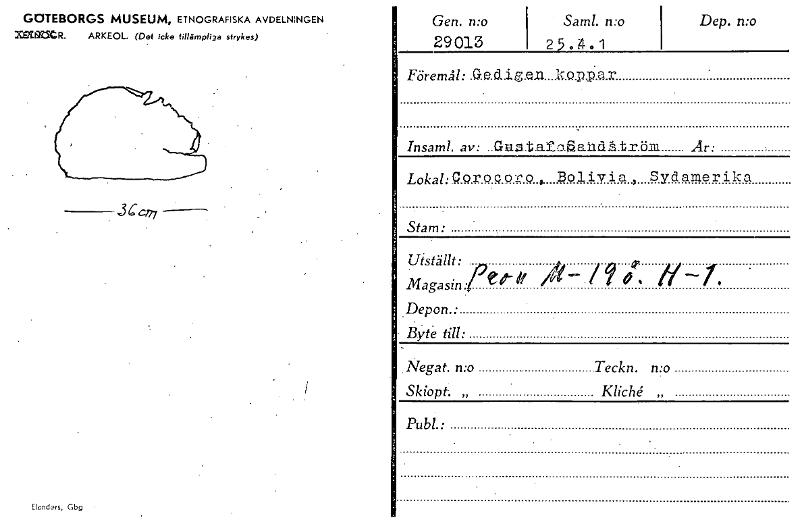 GÖTEBORGS MUSEUM, ETNOGRAFISKA AVDELNINGEN
ARKEOL. (Det icke tillämpliga strykes)
36cm
Elanders, Gbg
Gen. n:o Saml. n:o Dep. n:o
29013 25.4.1
Föremål: Gedigen koppar
Insaml. av: Gustaf Sandström År:
Lokal: Corocoro, Bolivia, Sydamerika
Stam:
Utställt:
Magasin: M-19ö. H-1.
Depon.:
Byte till:
Negat. n:o Teckn. n:o
Skiopt. „ Kliché „
Publ.: